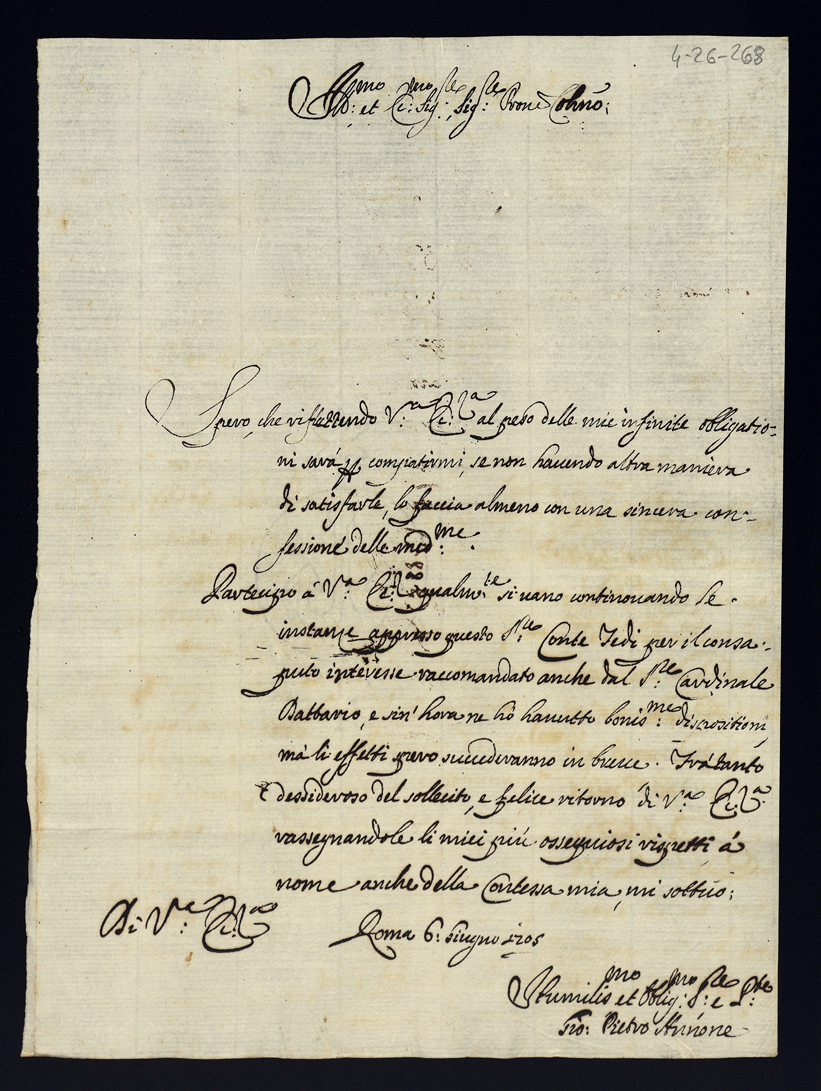 4-26-268
Ill:mo et Ecc:mo Sig:re Sig:re Prone Colmo:
Spero, che riflettendo V:a Ecc:za al peso delle mie infinite obligatio-
ni sará p compatirmi, se non havendo altra maniera
di satisfarle, lo faccia almeno con una sincera con-
fessione delle med:me.
Partecipo á V:a Ecc:za qualm:te si vano continouando le
instanze appresso questo S:re Conte Tedi per il consa-
puto interesse raccomandato anche dal S:re Cardinale
Dattario, e sin' hora ne hó havutto bonis:me dispositioni,
má li effetti spero succederanno in breve. Trá tanto
dessideroso del sollecito, e felice ritorno di V:a Ecc:za
rassegnandole li miei piú ossequiosi rispetti á
nome anche della Contessa mia, mi sottiio:
Di V:a Ecc:za
Roma 6: Giugno 1705
Humilis:mo et Oblig:mo S:re e S:te
Gio: Pietro Annone